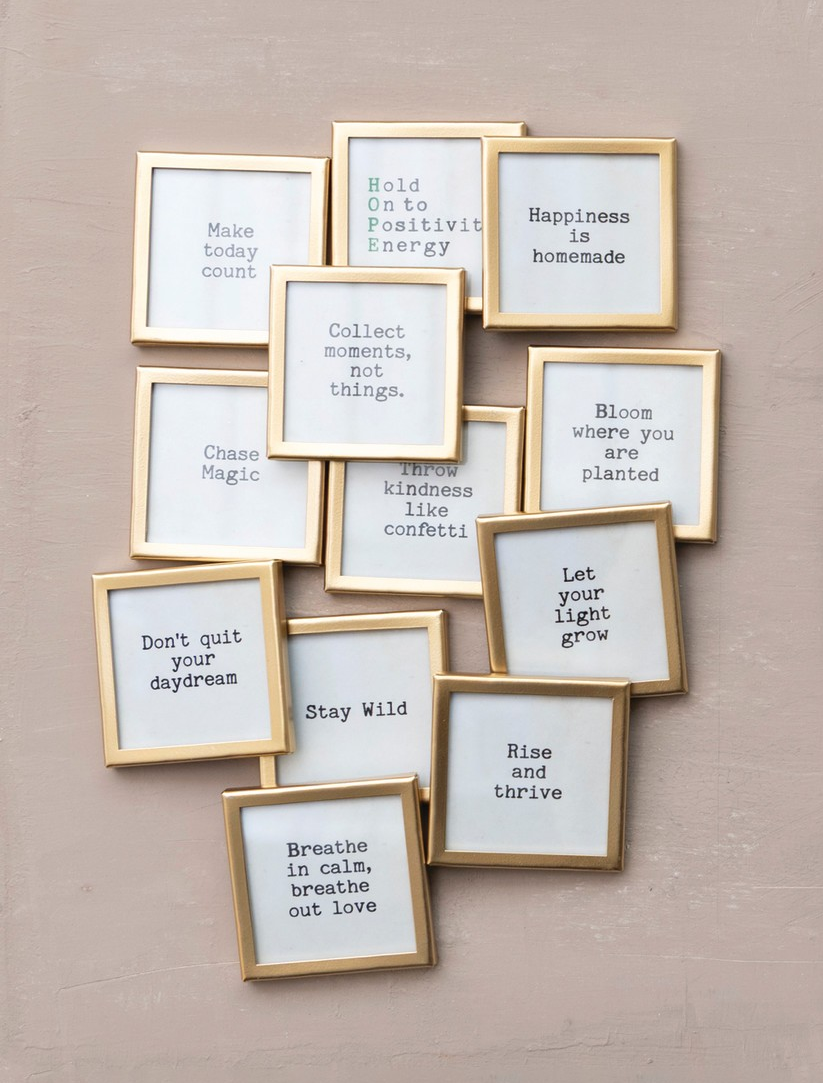 Make
today
count
Hold
On to
Positivit
Energy
Happiness
is
homemade
Collect
moments,
not
things.
Chase
Magic
Throw
kindness
like
confetti
Bloom
where you
are
planted
Let
your
light
grow
Don't quit
your
daydream
Stay Wild
Rise
and
thrive
Breathe
in calm,
breathe
out love